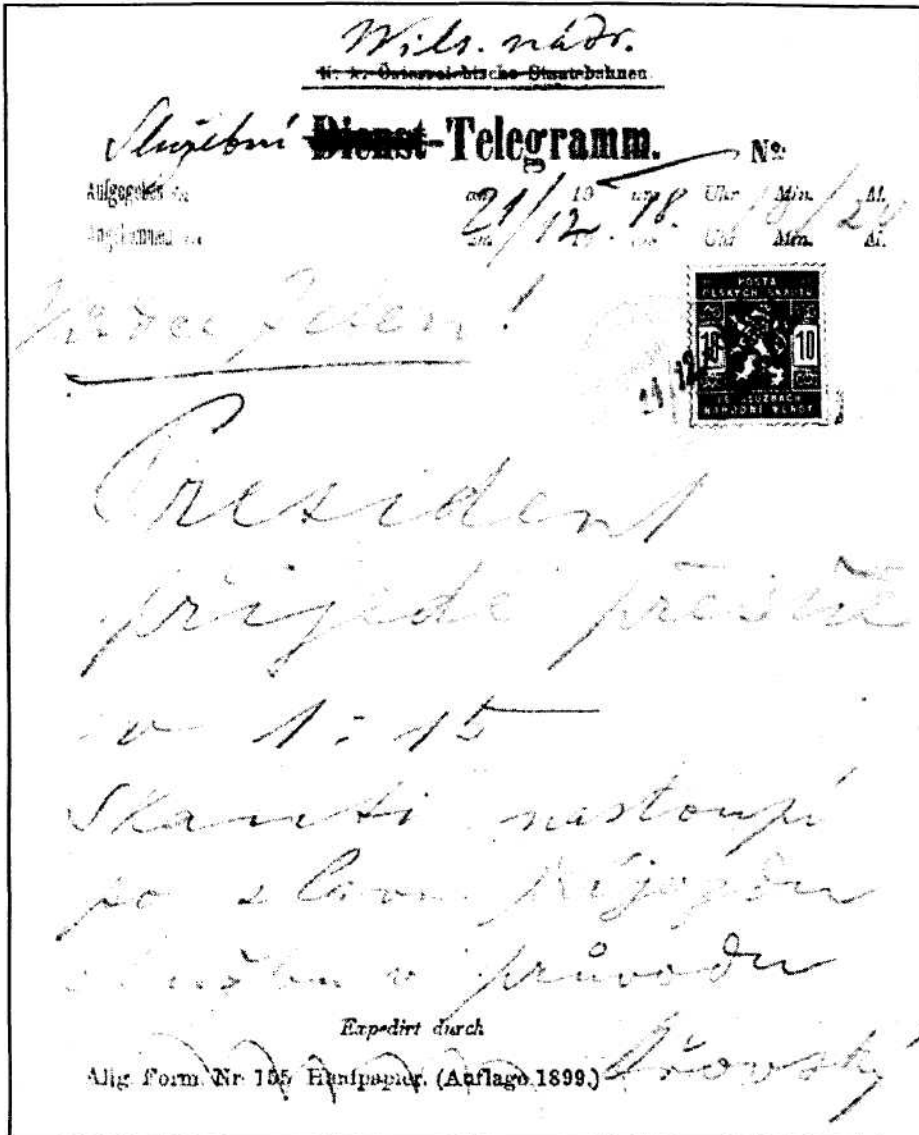 Wils. nádr.
K. k. Österreichische Staatsbahnen
Služební Dienst-Telegramm. No
Aufgegeben in am 19 um Uhr Min. Al.
21/12. 18. 10/24
Angekommen in am 19 um Uhr Min. Al.
Vůdce Jelen!
POŠTA
ČESKÝCH SKAUTŮ
10 10
VE SLUŽBÁCH
NÁRODNÍ VLÁDY
21/12
President
přijede přesně
v 1:15
Skauti nastoupí
po slavn. příjezdu
službu v průvodu
Expedirt durch
Allg. Form. Nr. 155 Hanfpapier. (Auflage 1899.)